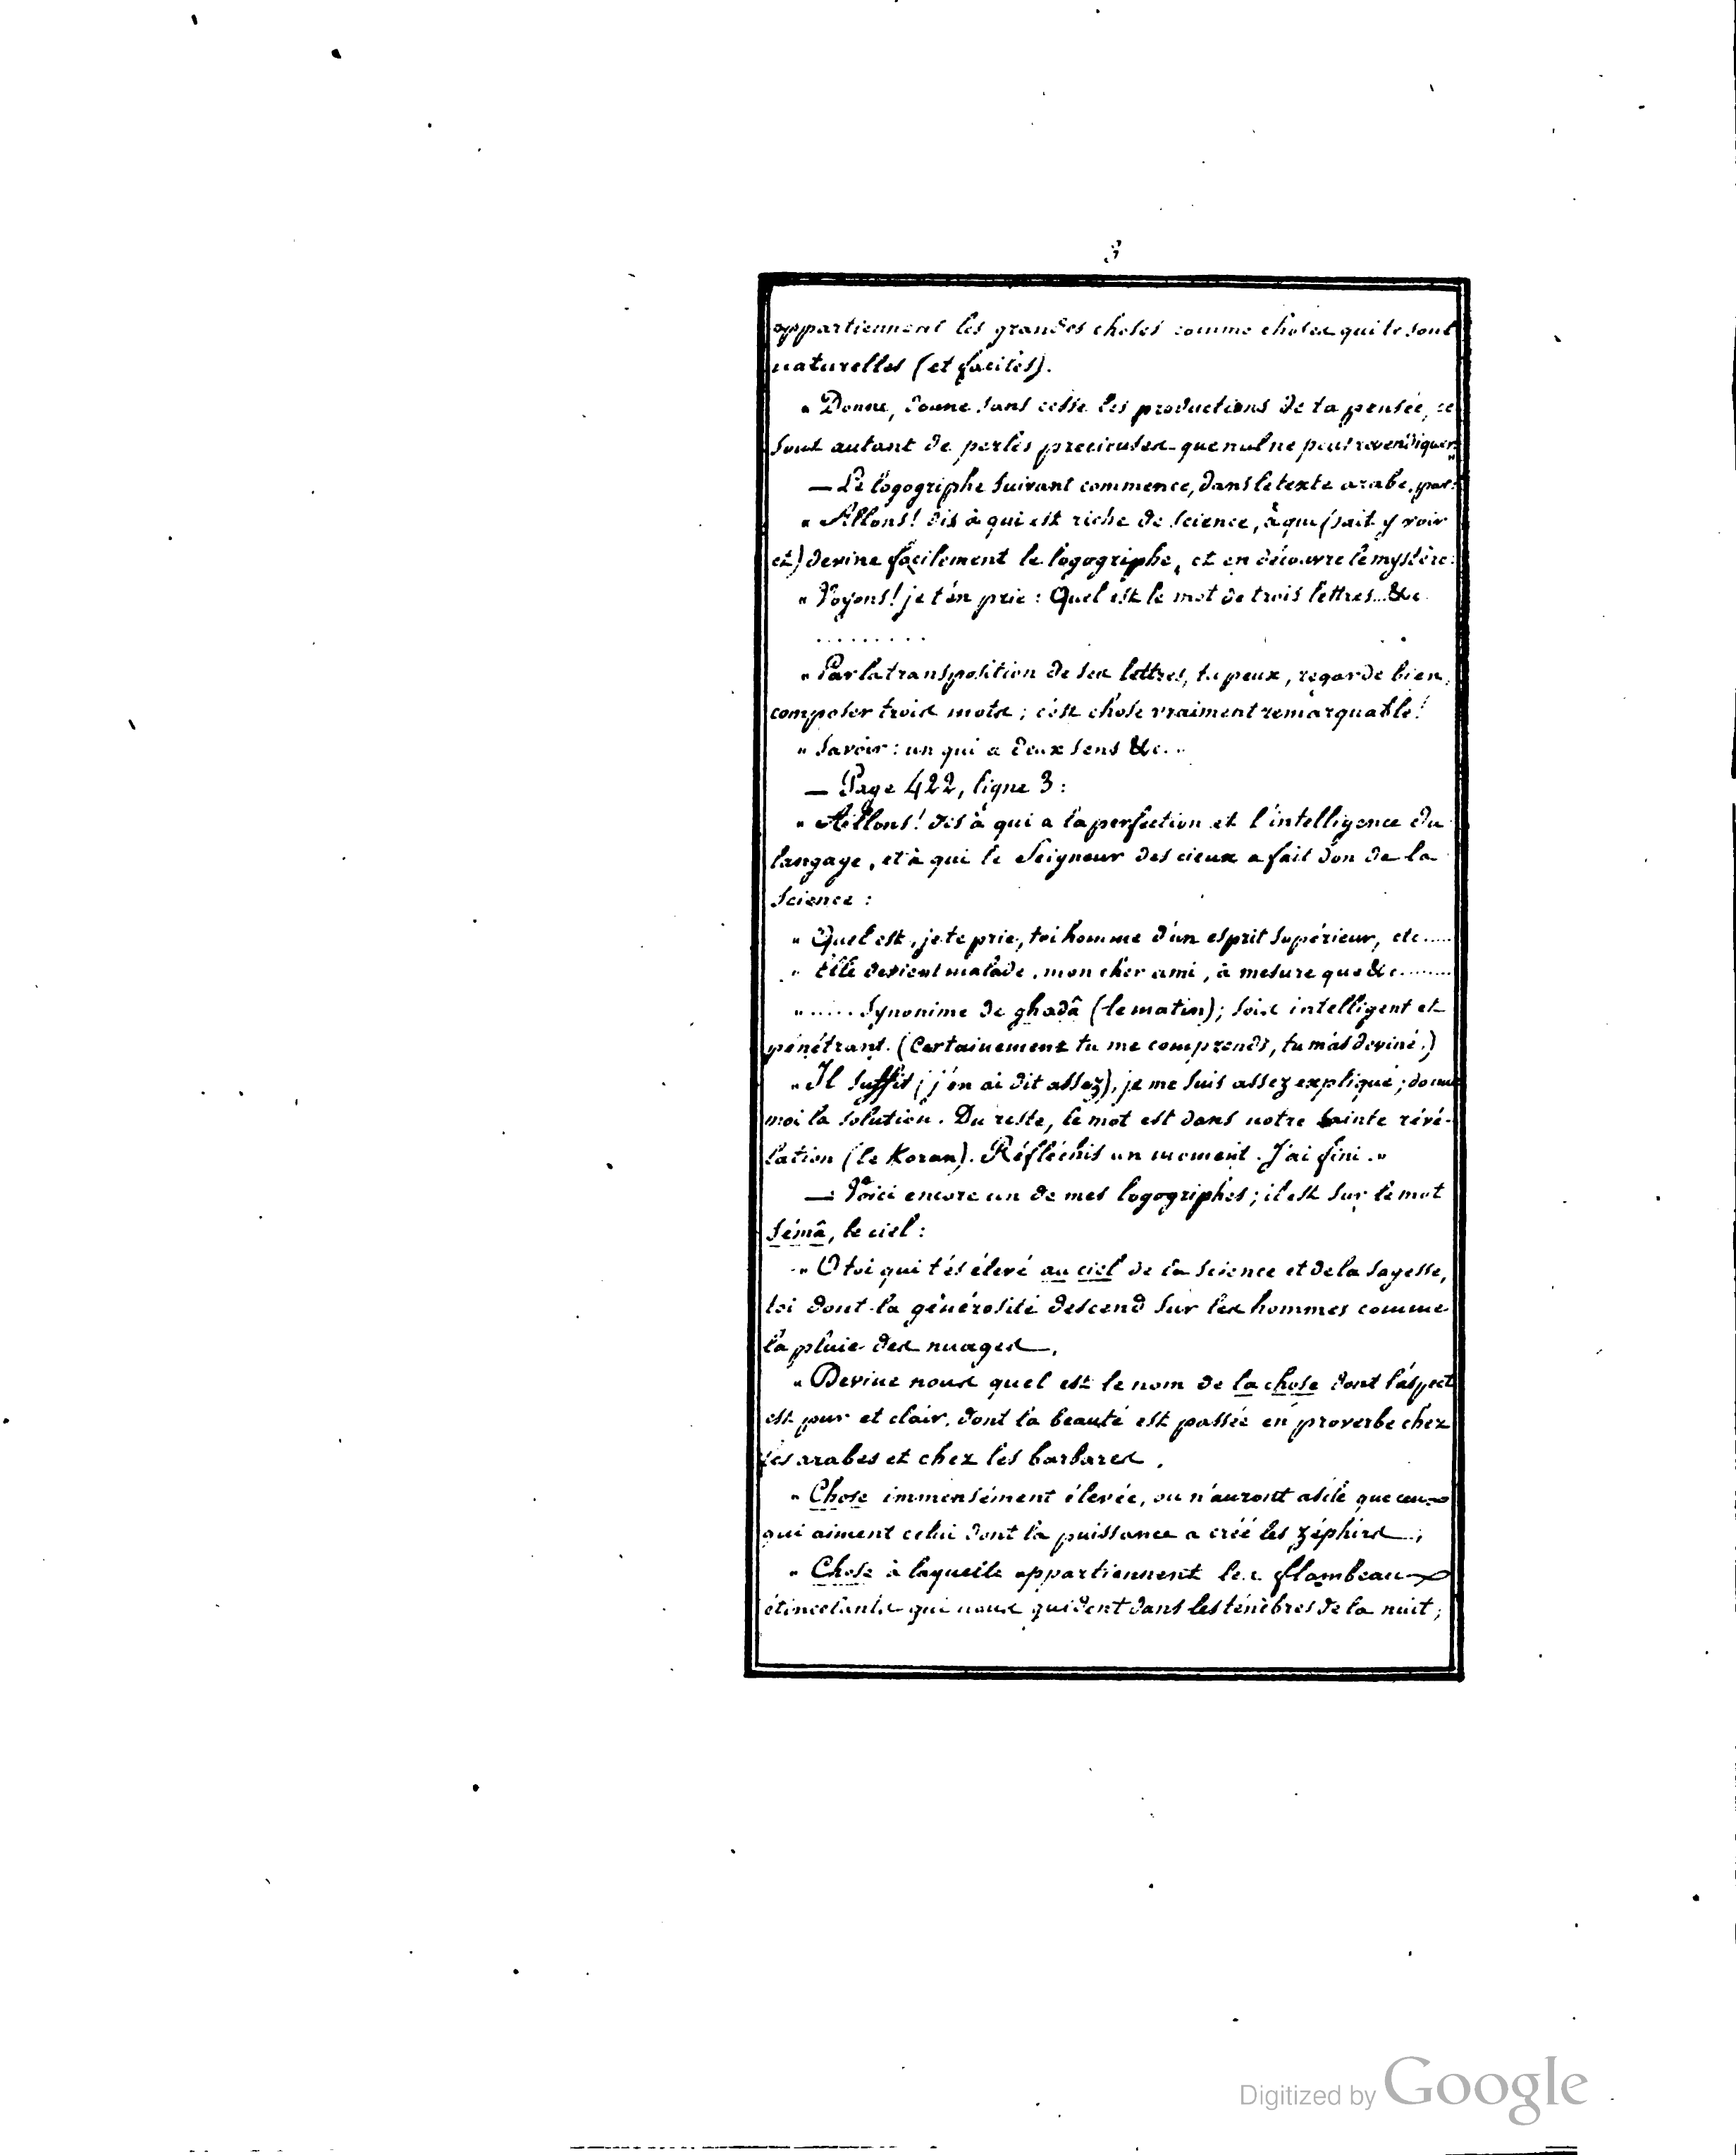 3
appartiennent les grandes choses comme choses qui te sont
naturelles (et faciles).
" Donne, donne sans cesse les productions de ta pensée, ce
sont autant de perles precieuses que nul ne peut revendiquer."
— Le logogriphe suivant commence, dans le texte arabe, par:
" Allons! dis à qui est riche de science, à qui (sait y voir
et) devine facilement le logogriphe, et en découvre le mystère:
" Voyons! je t'en prie: Quel est le mot de trois lettres...&c
.........
" Par la transposition de ses lettres, tu peux, regarde bien,
composer trois mots; c'est chose vraiment remarquable!
" Savoir: un qui a deux sens &c.."
— Page 422, ligne 3:
" Allons! dis à qui a la perfection et l'intelligence du
langage, et à qui le Seigneur des cieux a fait don de la
science:
" Quel est, je te prie, toi homme d'un esprit supérieur, etc.....
" Elle devient malade, mon cher ami, à mesure que &c........
"..... Synonime de ghadâ (le matin); sois intelligent et
pénétrant. (Certainement tu me comprends, tu m'as deviné.)
" Il suffit (j'en ai dit assez), je me suis assez expliqué; donne
moi la solution. Du reste, le mot est dans notre sainte révé-
lation (le Koran). Réfléchis un moment. J'ai fini."
— Voici encore un de mes logogriphes; il est sur le mot
sémâ, le ciel:
" O toi qui t'és élevé au ciel de la science et de la sagesse,
toi dont la générosité descend sur les hommes comme
la pluie des nuages,
" Devine nous quel est le nom de la chose dont l'aspect
est pur et clair, dont la beauté est passée en proverbe chez
les arabes et chez les barbares.
" Chose immensément élevée, ou n'auront asile que ceux
qui aiment celui dont la puissance a créé les zéphirs;
" Chose à laquelle appartiennent les flambeaux
étincelants qui nous guident dans les ténèbres de la nuit;
Digitized by Google